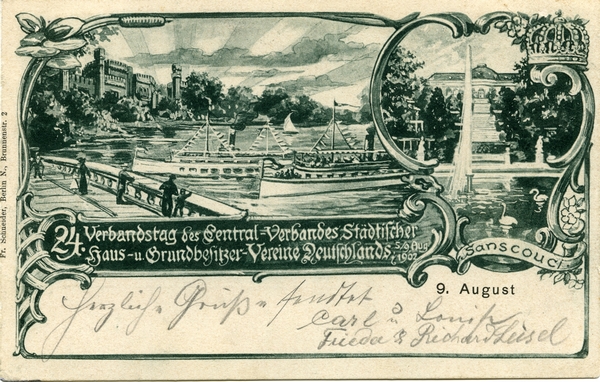 24. Verbandstag des Central-Verbandes Städtischer
Haus- u. Grundbesitzer-Vereine Deutschlands 5.6 Aug 1902
Sanscouci
9. August
Herzliche Grüße sendet
Carl u Louise
Frieda & Richard
Fr. Schneider, Berlin N., Brunnenstr. 2